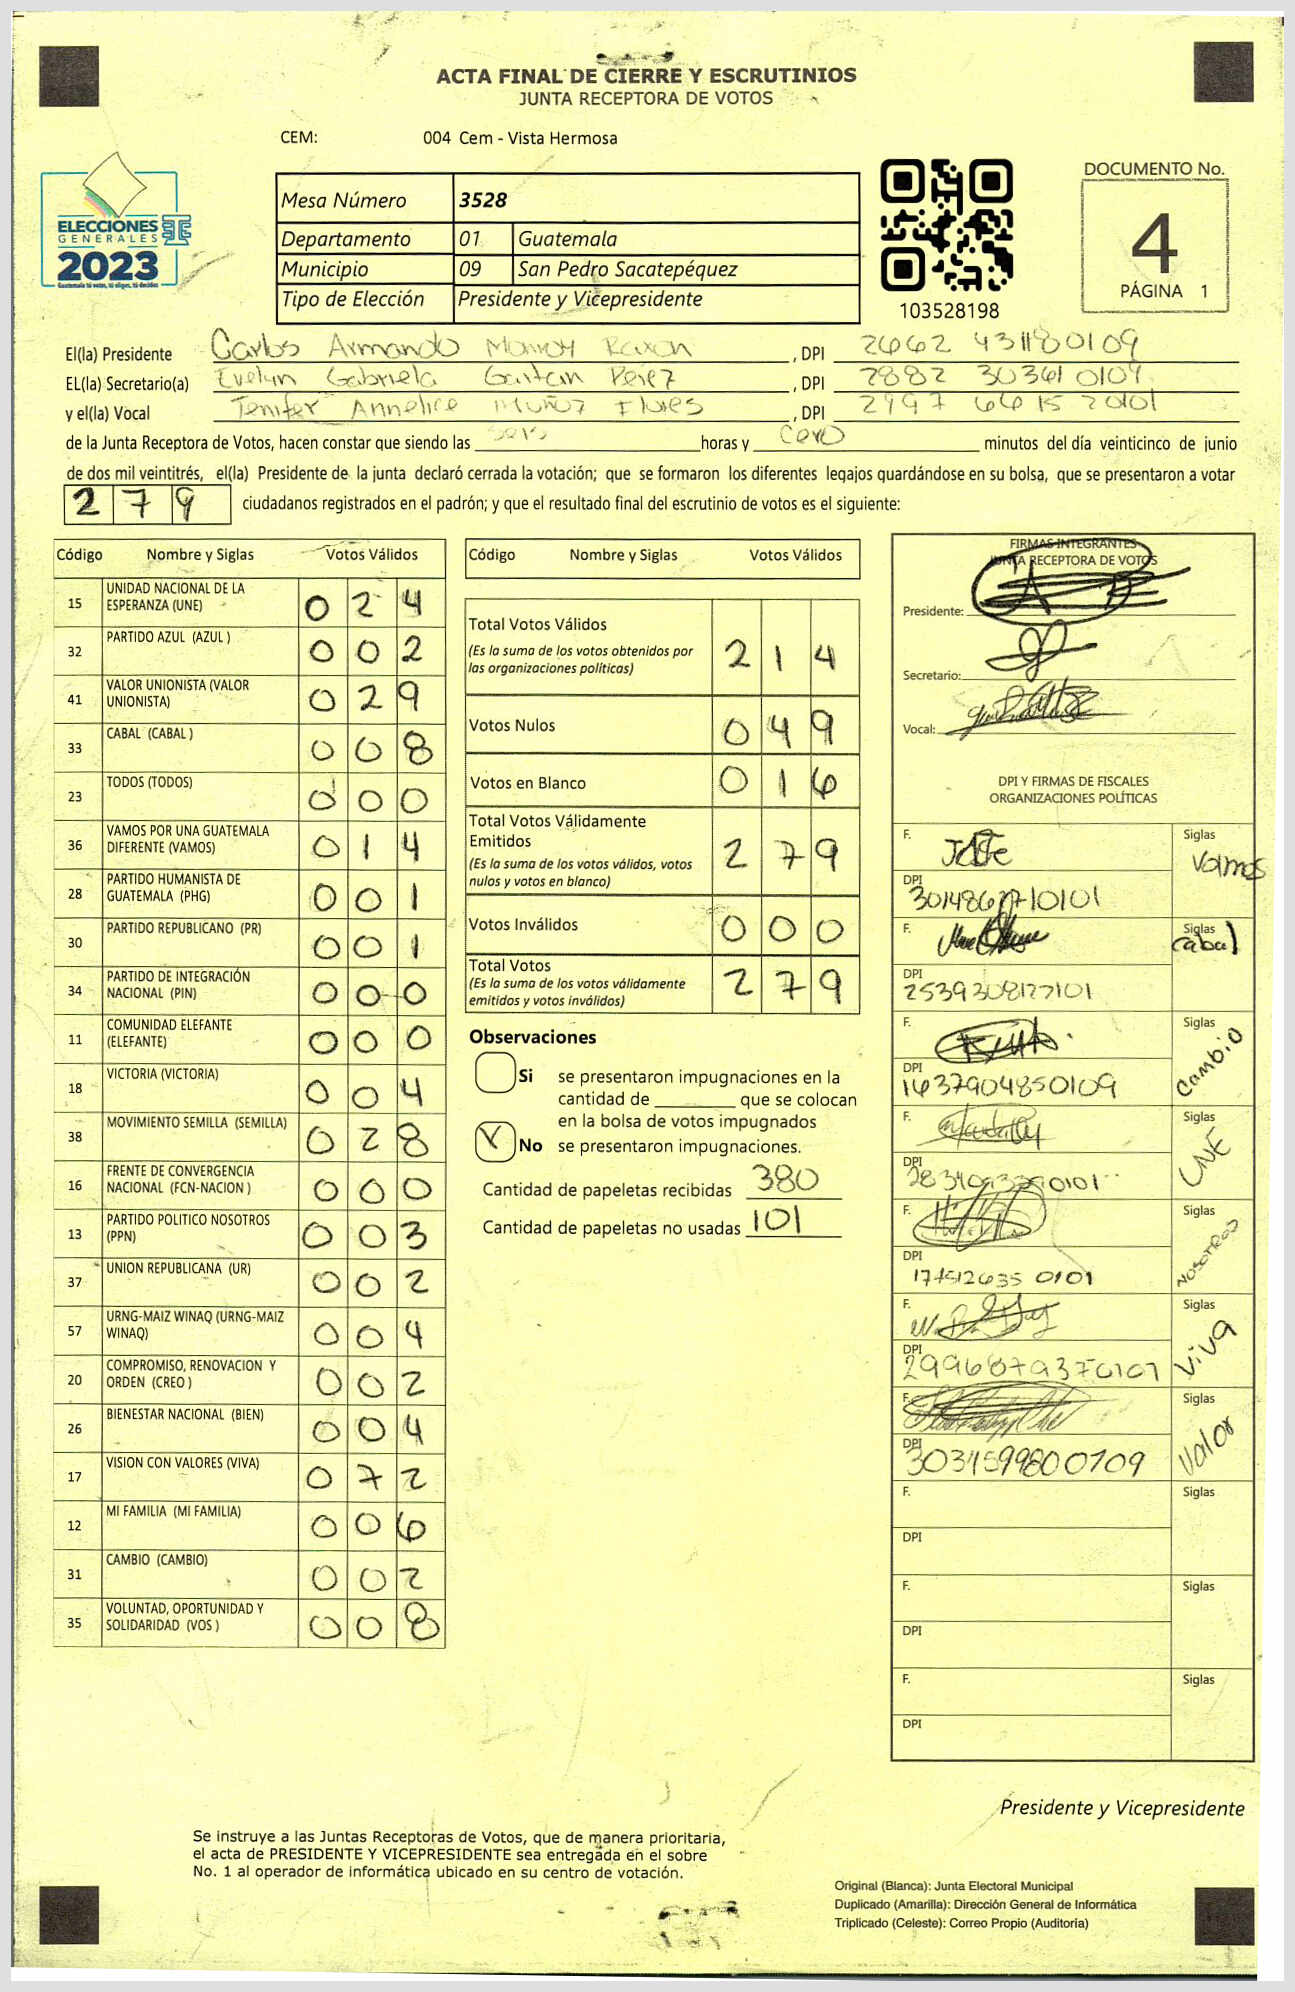 ACTA FINAL DE CIERRE Y ESCRUTINIOS
JUNTA RECEPTORA DE VOTOS
CEM: 004 Cem - Vista Hermosa
ELECCIONES
GENERALES
2023
Guatemala tú votas, tú eliges, tú decides
Mesa Número 3528
Departamento 01 Guatemala
Municipio 09 San Pedro Sacatepéquez
Tipo de Elección Presidente y Vicepresidente
103528198
DOCUMENTO No.
4
PÁGINA 1
El(la) Presidente Carlos Armando Monroy Raxon , DPI 2662 43118 0109
EL(la) Secretario(a) Evelyn Gabriela Gaitan Perez , DPI 2882 30361 0109
y el(la) Vocal Jenifer Annelice Muñoz Flores , DPI 2997 66152 0101
de la Junta Receptora de Votos, hacen constar que siendo las seis horas y cero minutos del día veinticinco de junio
de dos mil veintitrés, el(la) Presidente de la junta declaró cerrada la votación; que se formaron los diferentes legajos guardándose en su bolsa, que se presentaron a votar
279 ciudadanos registrados en el padrón; y que el resultado final del escrutinio de votos es el siguiente:
Código Nombre y Siglas Votos Válidos
15 UNIDAD NACIONAL DE LA ESPERANZA (UNE) 0 2 4
32 PARTIDO AZUL (AZUL ) 0 0 2
41 VALOR UNIONISTA (VALOR UNIONISTA) 0 2 9
33 CABAL (CABAL ) 0 0 8
23 TODOS (TODOS) 0 0 0
36 VAMOS POR UNA GUATEMALA DIFERENTE (VAMOS) 0 1 4
28 PARTIDO HUMANISTA DE GUATEMALA (PHG) 0 0 1
30 PARTIDO REPUBLICANO (PR) 0 0 1
34 PARTIDO DE INTEGRACIÓN NACIONAL (PIN) 0 0 0
11 COMUNIDAD ELEFANTE (ELEFANTE) 0 0 0
18 VICTORIA (VICTORIA) 0 0 4
38 MOVIMIENTO SEMILLA (SEMILLA) 0 2 8
16 FRENTE DE CONVERGENCIA NACIONAL (FCN-NACION ) 0 0 0
13 PARTIDO POLITICO NOSOTROS (PPN) 0 0 3
37 UNION REPUBLICANA (UR) 0 0 2
57 URNG-MAIZ WINAQ (URNG-MAIZ WINAQ) 0 0 4
20 COMPROMISO, RENOVACION Y ORDEN (CREO ) 0 0 2
26 BIENESTAR NACIONAL (BIEN) 0 0 4
17 VISION CON VALORES (VIVA) 0 7 2
12 MI FAMILIA (MI FAMILIA) 0 0 6
31 CAMBIO (CAMBIO) 0 0 2
35 VOLUNTAD, OPORTUNIDAD Y SOLIDARIDAD (VOS ) 0 0 8
Código Nombre y Siglas Votos Válidos
Total Votos Válidos 2 1 4
(Es la suma de los votos obtenidos por
las organizaciones políticas)
Votos Nulos 0 4 9
Votos en Blanco 0 1 6
Total Votos Válidamente
Emitidos 2 7 9
(Es la suma de los votos válidos, votos
nulos y votos en blanco)
Votos Inválidos 0 0 0
Total Votos 2 7 9
(Es la suma de los votos válidamente
emitidos y votos inválidos)
Observaciones
Si se presentaron impugnaciones en la
cantidad de ________ que se colocan
en la bolsa de votos impugnados
No se presentaron impugnaciones.
Cantidad de papeletas recibidas 380
Cantidad de papeletas no usadas 101
FIRMAS INTEGRANTES
JUNTA RECEPTORA DE VOTOS
Presidente:
Secretario:
Vocal:
DPI Y FIRMAS DE FISCALES
ORGANIZACIONES POLÍTICAS
F. Siglas Vamos
DPI
F. Siglas Cabal
DPI 2539308127101
F. Siglas Cambio
DPI 1637904850109
F. Siglas UNE
DPI
F. Siglas NOSOTROS
DPI 174512635 0101
F. Siglas Viva
DPI 2996879370101
F. Siglas Valor
DPI 3034599800109
F. Siglas
DPI
F. Siglas
DPI
F. Siglas
DPI
Presidente y Vicepresidente
Se instruye a las Juntas Receptoras de Votos, que de manera prioritaria,
el acta de PRESIDENTE Y VICEPRESIDENTE sea entregada en el sobre
No. 1 al operador de informática ubicado en su centro de votación.
Original (Blanca): Junta Electoral Municipal
Duplicado (Amarilla): Dirección General de Informática
Triplicado (Celeste): Correo Propio (Auditoría)